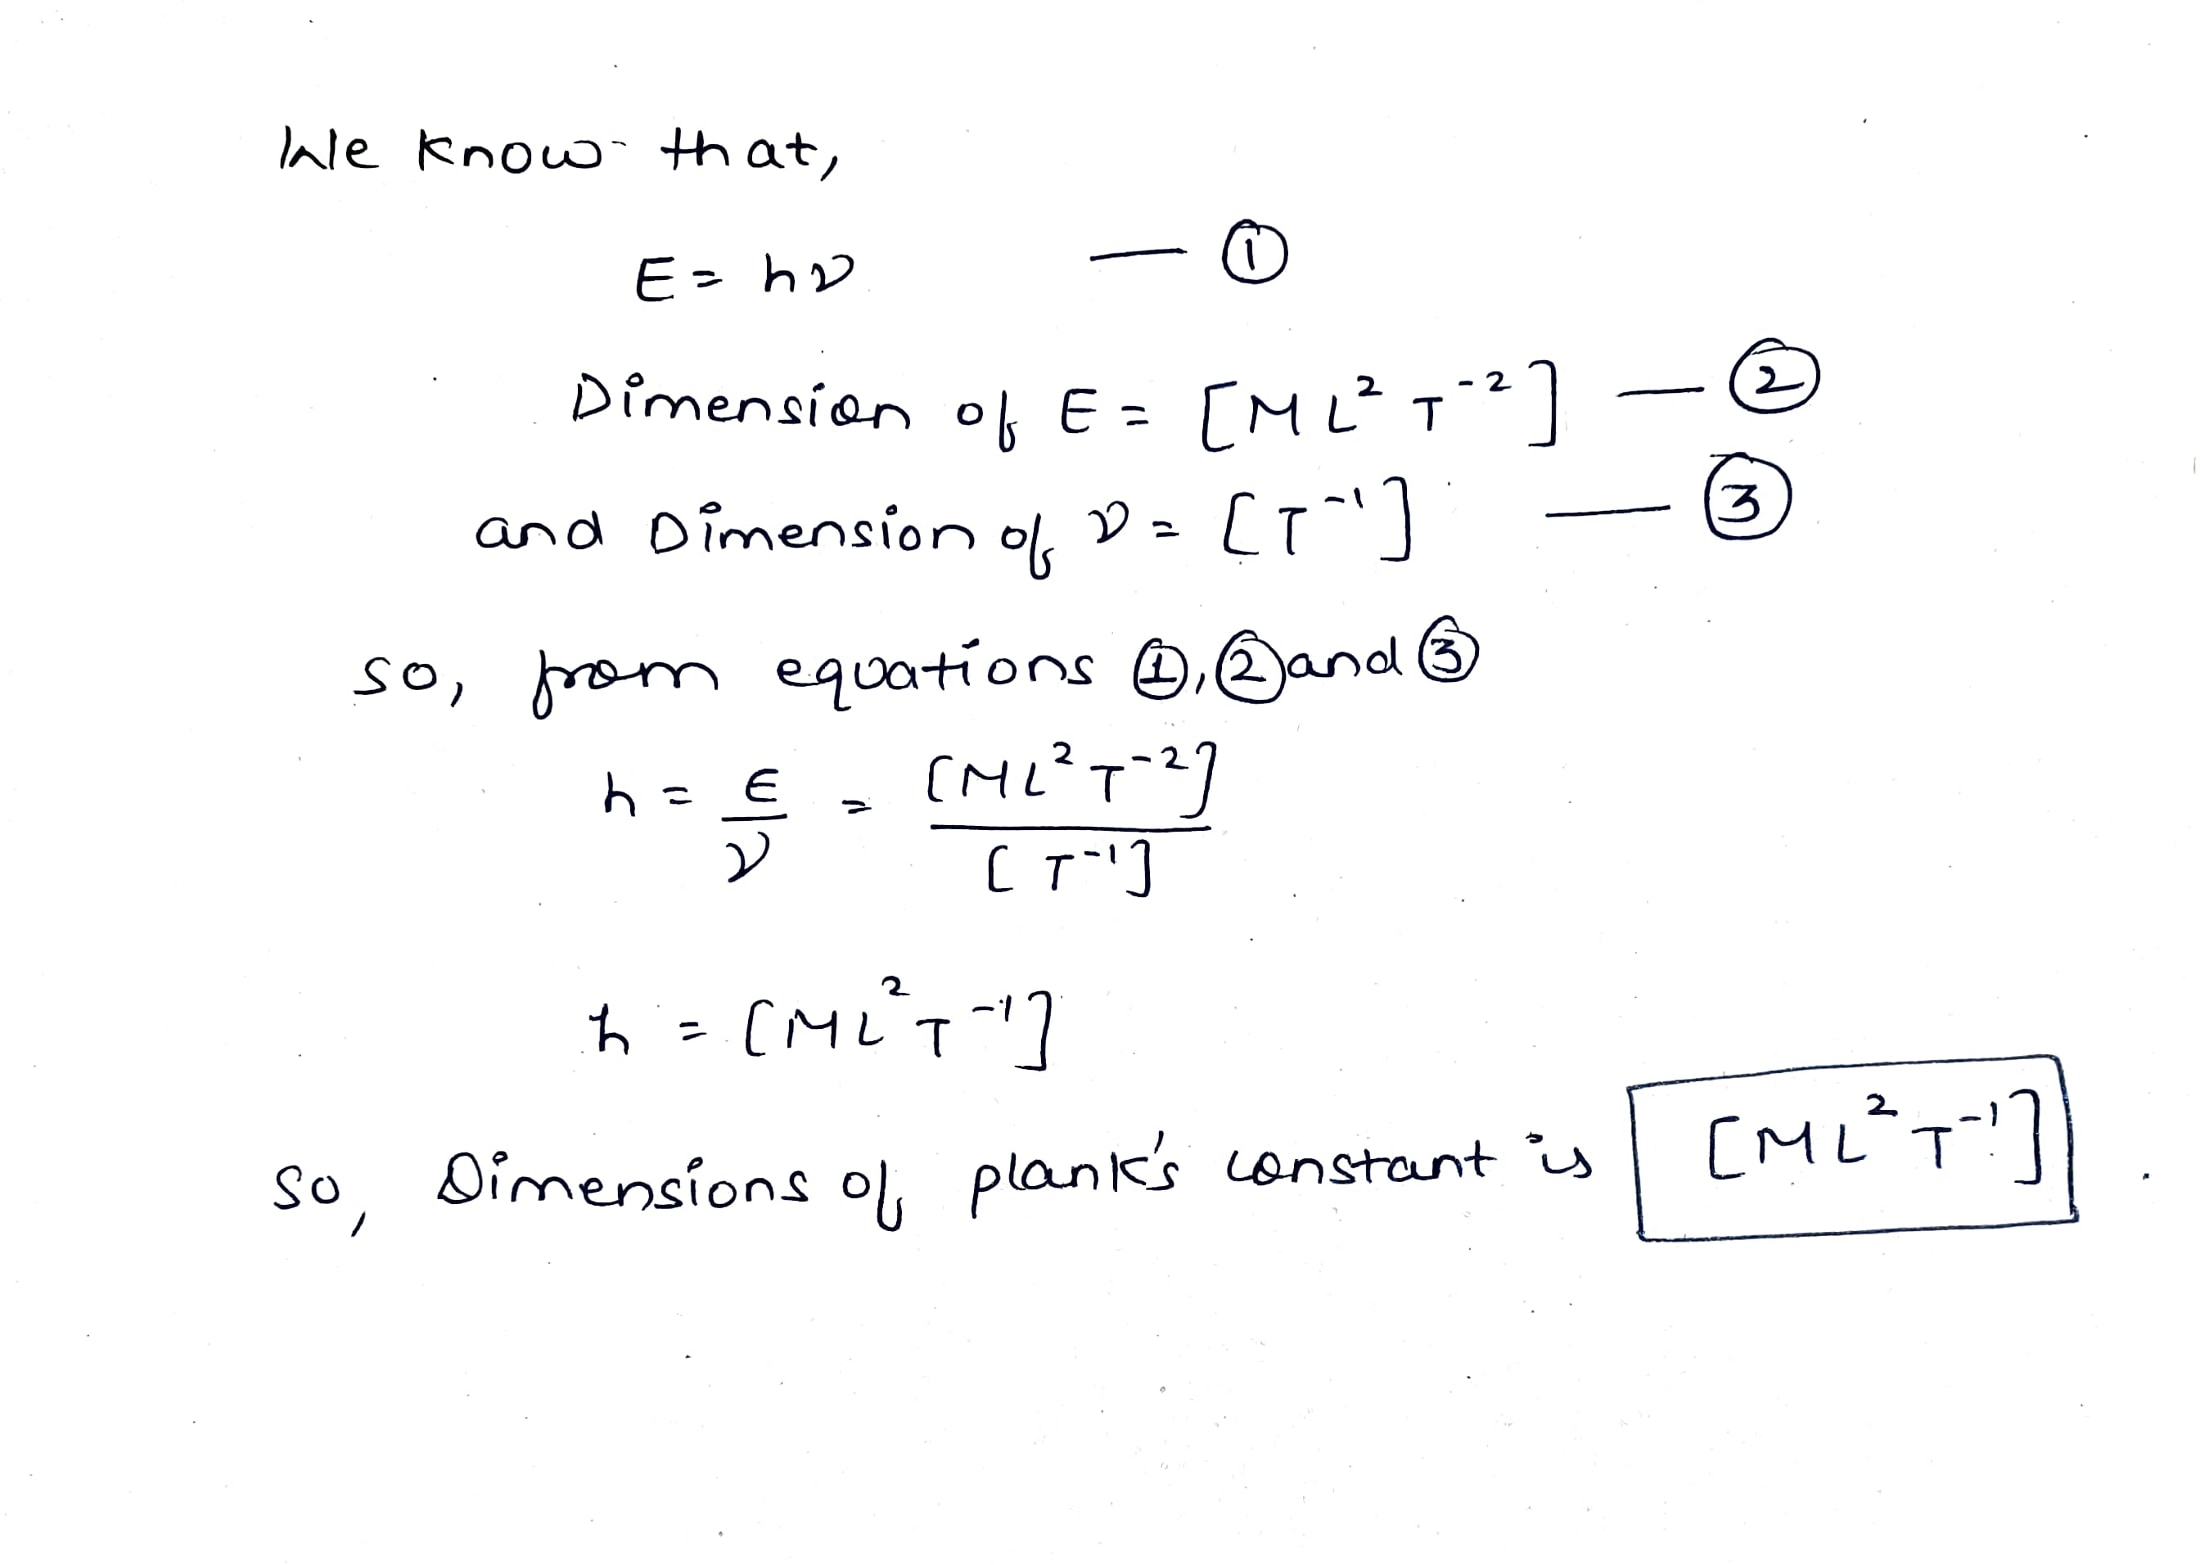 We know that,
E = hν — ①
Dimension of E = [M L² T⁻²] — ②
and Dimension of ν = [T⁻¹] — ③
so, from equations ①, ② and ③
h = E/ν = [ML²T⁻²]/[T⁻¹]
h = [ML²T⁻¹]
so, Dimensions of plank's constant is [ML²T⁻¹].